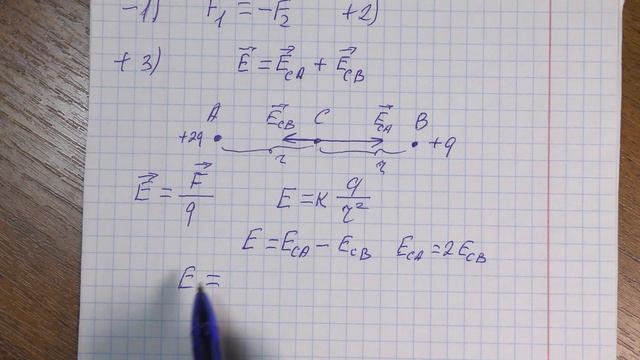 −1) F⃗₁ = −F⃗₂ +2)
+3) E⃗ = E⃗_CA + E⃗_CB
A E⃗_CB C E⃗_CA B
+2q +q
r r
E⃗ = F⃗/q E = K q/r²
E = E_CA − E_CB E_CA = 2E_CB
E =